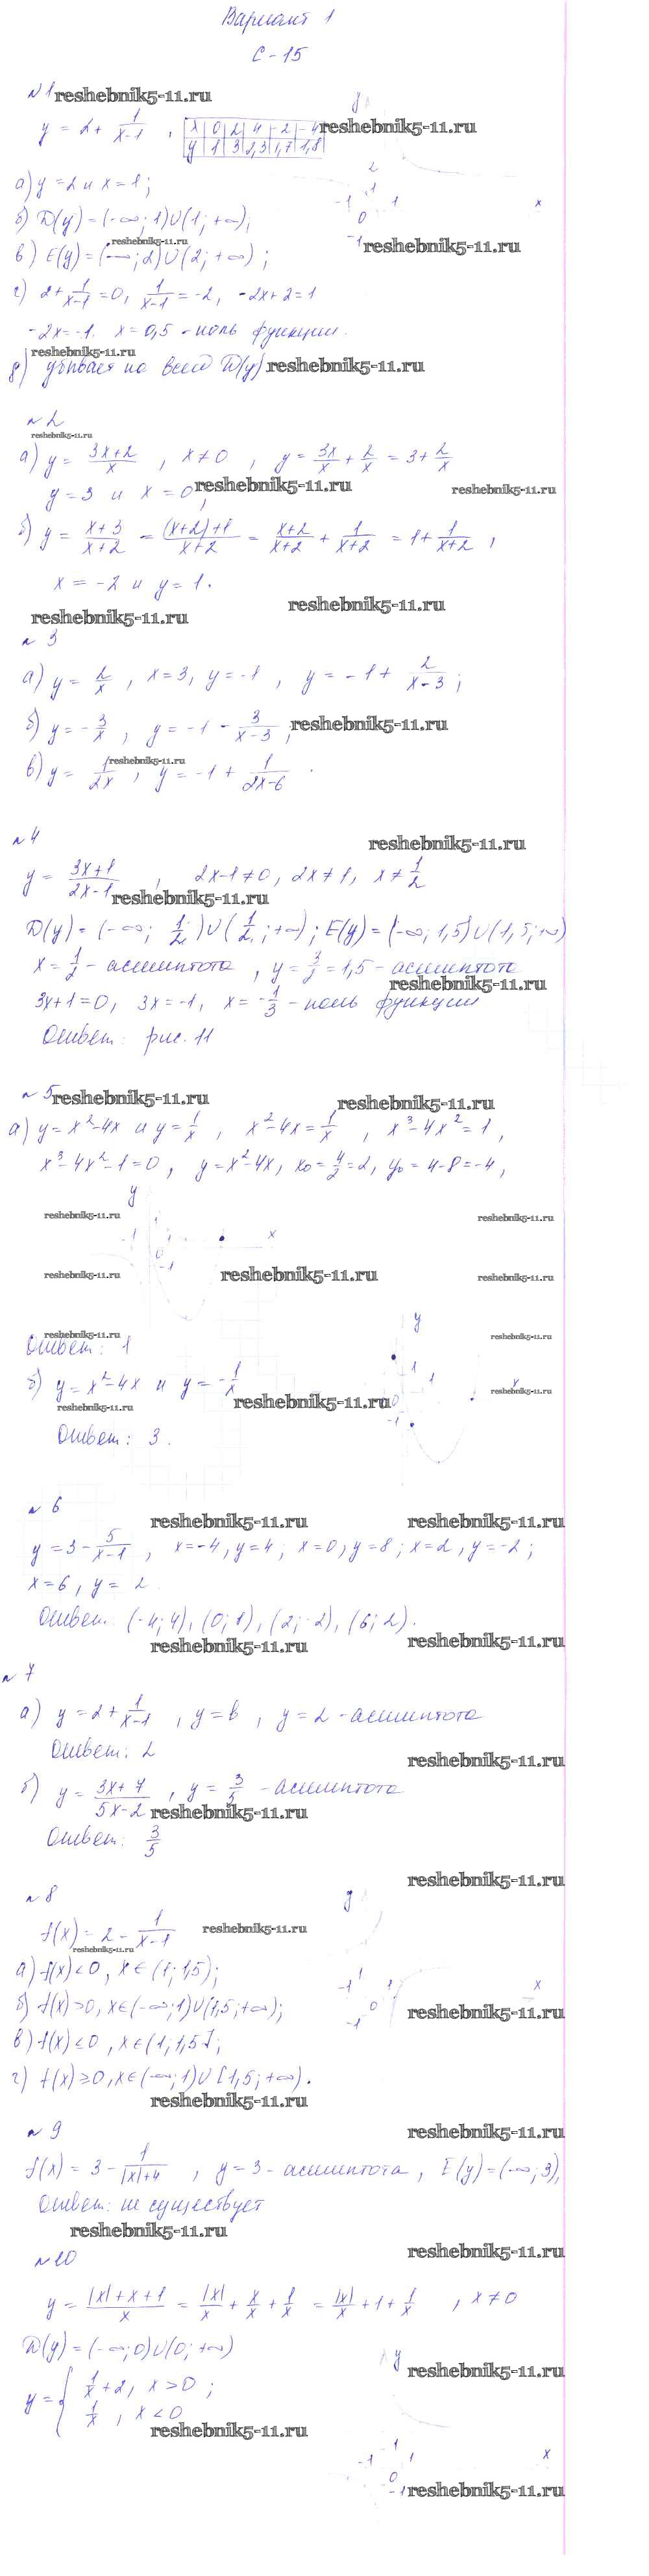 Вариант 1
С-15
№1 reshebnik5-11.ru
y = 2 + 1/(x-1) , x | 0 | 2 | 4 | -2 | -4 reshebnik5-11.ru
y | 1 | 3 | 2,3 | 1,7 | 1,8
а) y = 2 и x = 1;
б) D(y) = (-∞; 1)∪(1; +∞);
reshebnik5-11.ru
reshebnik5-11.ru
в) E(y) = (-∞; 2)∪(2; +∞);
г) 2 + 1/(x-1) = 0, 1/(x-1) = -2, -2x + 2 = 1
-2x = -1. x = 0,5 - ноль функции.
reshebnik5-11.ru
д) убывает на всей D(y) reshebnik5-11.ru
№2
reshebnik5-11.ru
а) y = (3x+2)/x , x ≠ 0 , y = 3x/x + 2/x = 3 + 2/x
y = 3 и x = 0, reshebnik5-11.ru reshebnik5-11.ru
б) y = (x+3)/(x+2) = ((x+2)+1)/(x+2) = (x+2)/(x+2) + 1/(x+2) = 1 + 1/(x+2) ,
x = -2 и y = 1.
reshebnik5-11.ru reshebnik5-11.ru
№3
а) y = 2/x , x = 3, y = -1 , y = -1 + 2/(x-3) ;
б) y = -3/x , y = -1 - 3/(x-3) ; reshebnik5-11.ru
reshebnik5-11.ru
в) y = 1/2x , y = -1 + 1/(2x-6) .
№4 reshebnik5-11.ru
y = (3x+1)/(2x-1) , 2x-1 ≠ 0, 2x ≠ 1, x ≠ 1/2
reshebnik5-11.ru
D(y) = (-∞; 1/2)∪(1/2; +∞); E(y) = (-∞; 1,5)∪(1,5; +∞)
x = 1/2 - асимптота , y = 3/2 = 1,5 - асимптота
reshebnik5-11.ru
3x+1 = 0, 3x = -1, x = -1/3 - ноль функции
Ответ: рис. 11
№5 reshebnik5-11.ru reshebnik5-11.ru
а) y = x²-4x и y = 1/x , x²-4x = 1/x , x³-4x² = 1 ,
x³-4x²-1 = 0 , y = x²-4x, x₀ = 4/2 = 2, y₀ = 4-8 = -4 ,
reshebnik5-11.ru reshebnik5-11.ru
reshebnik5-11.ru reshebnik5-11.ru reshebnik5-11.ru
reshebnik5-11.ru reshebnik5-11.ru
Ответ: 1
б) y = x²-4x и y = -1/x
reshebnik5-11.ru reshebnik5-11.ru reshebnik5-11.ru
Ответ: 3.
№6
reshebnik5-11.ru reshebnik5-11.ru
y = 3 - 5/(x-1) , x = -4, y = 4; x = 0, y = 8; x = 2, y = -2;
x = 6, y = 2
Ответ: (-4; 4), (0; 8), (2; -2), (6; 2).
reshebnik5-11.ru reshebnik5-11.ru
№7
а) y = 2 + 1/(x-1) , y = b , y = 2 - асимптота
Ответ: 2 reshebnik5-11.ru
б) y = (3x+7)/(5x-2) , y = 3/5 - асимптота
reshebnik5-11.ru
Ответ: 3/5
reshebnik5-11.ru
№8
f(x) = 2 - 1/(x-1) reshebnik5-11.ru
reshebnik5-11.ru
а) f(x) < 0, x ∈ (1; 1,5);
б) f(x) > 0, x ∈ (-∞; 1)∪(1,5; +∞); reshebnik5-11.ru
в) f(x) ≤ 0, x ∈ (1; 1,5];
г) f(x) ≥ 0, x ∈ (-∞; 1)∪[1,5; +∞).
reshebnik5-11.ru
№9 reshebnik5-11.ru
f(x) = 3 - 1/(|x|+4) , y = 3 - асимптота, E(y) = (-∞; 3),
Ответ: не существует
reshebnik5-11.ru
№10 reshebnik5-11.ru
y = (|x|+x+1)/x = |x|/x + x/x + 1/x = |x|/x + 1 + 1/x , x ≠ 0
D(y) = (-∞; 0)∪(0; +∞)
reshebnik5-11.ru
y = { 1/x + 2, x > 0 ;
1/x , x < 0
reshebnik5-11.ru
reshebnik5-11.ru